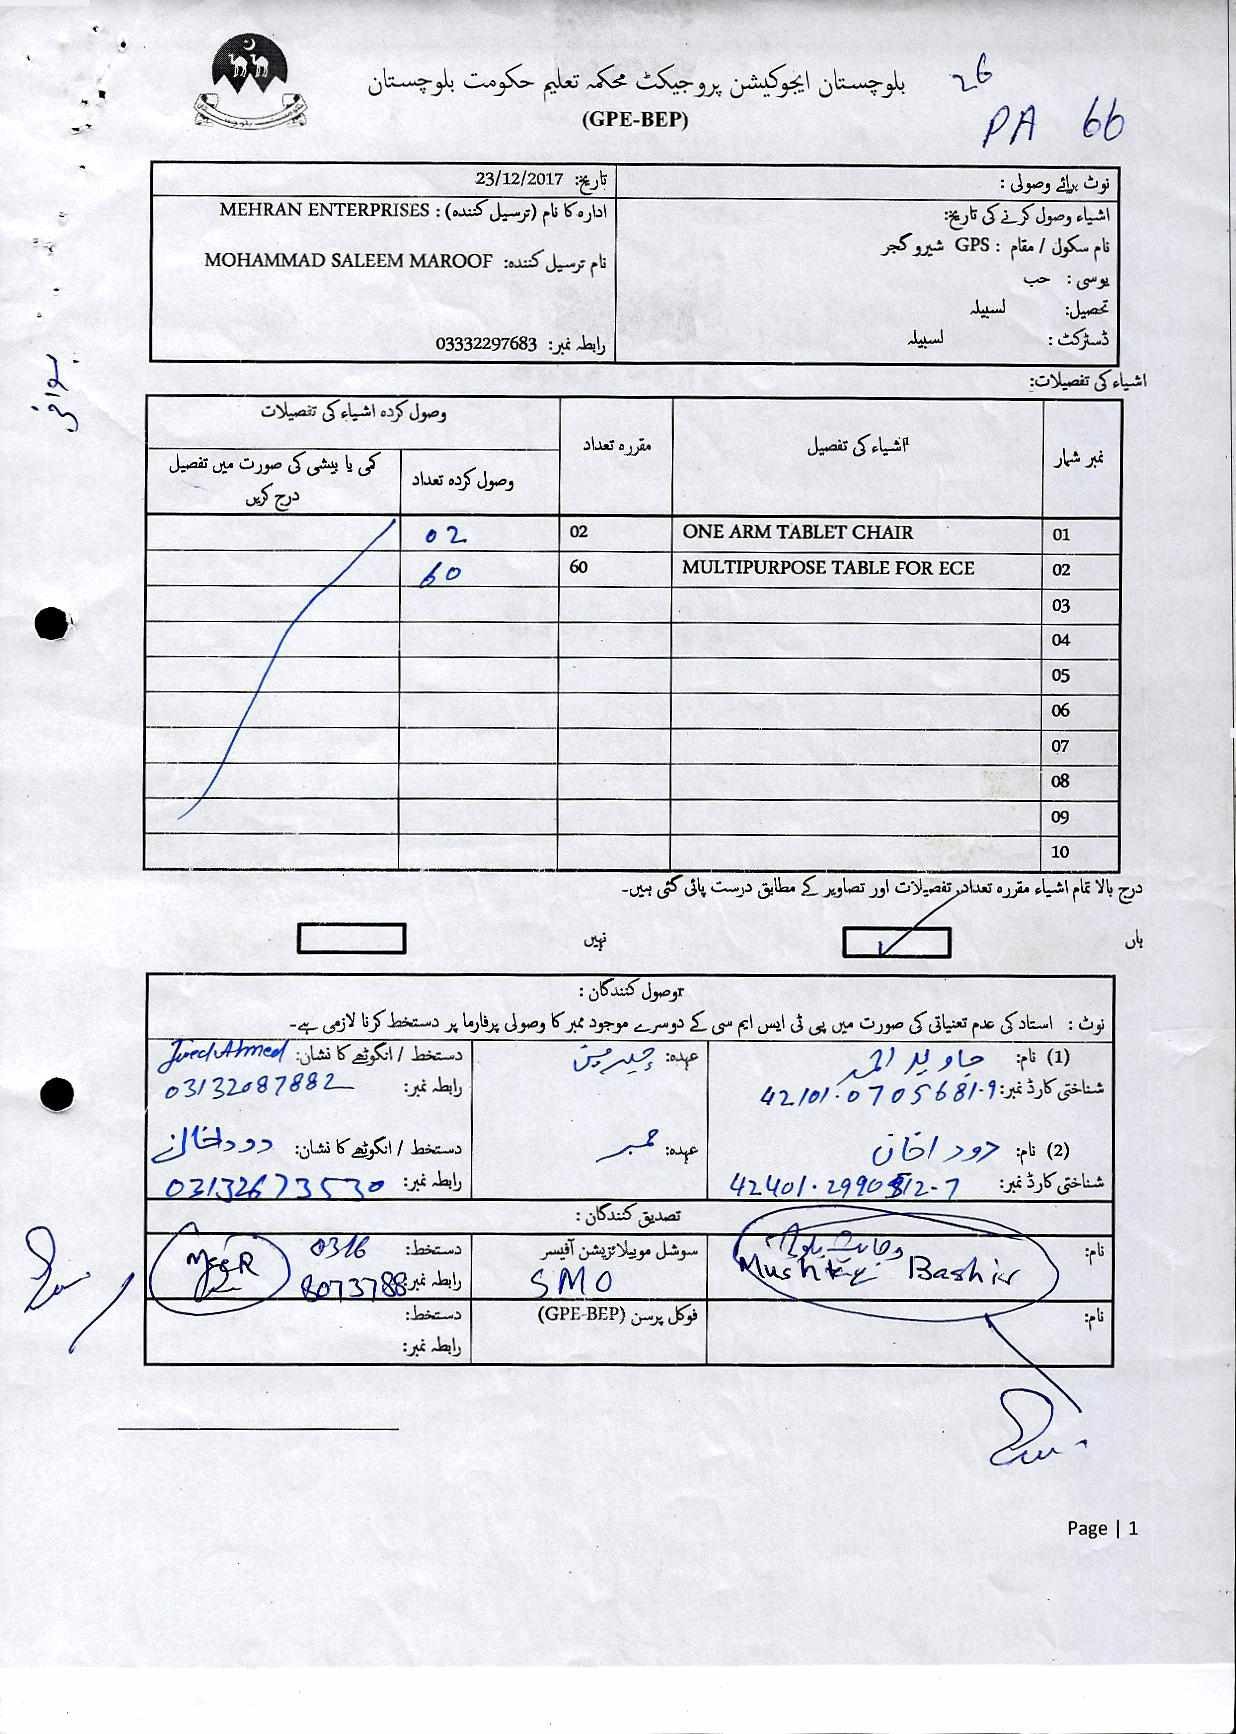 بلوچستان ایجوکیشن پروجیکٹ محکمہ تعلیم حکومت بلوچستان
(GPE-BEP)
26
PA 66
نوٹ برائے وصولی :
تاریخ: 23/12/2017
اشیاء وصول کرنے کی تاریخ:
ادارہ کا نام (ترسیل کنندہ) : MEHRAN ENTERPRISES
نام سکول / مقام : GPS شیرو گجر
نام ترسیل کنندہ: MOHAMMAD SALEEM MAROOF
یوسی : حب
تحصیل: لسبیلہ
ڈسٹرکٹ : لسبیلہ
رابطہ نمبر: 03332297683
اشیاء کی تفصیلات:
نمبر شمار
اشیاء کی تفصیل
مقررہ تعداد
وصول کردہ اشیاء کی تفصیلات
وصول کردہ تعداد
کمی یا بیشی کی صورت میں تفصیل درج کریں
01 ONE ARM TABLET CHAIR 02 02
02 MULTIPURPOSE TABLE FOR ECE 60 60
03
04
05
06
07
08
09
10
درج بالا تمام اشیاء مقررہ تعداد، تفصیلات اور تصاویر کے مطابق درست پائی گئی ہیں۔
ہاں
نہیں
وصول کنندگان :
نوٹ : استاد کی عدم تعیناتی کی صورت میں پی ٹی ایس ایم سی کے دوسرے موجود ممبر کا وصولی پرفارما پر دستخط کرنا لازمی ہے۔
(1) نام: جاوید احمد
عہدہ: چیرمین
دستخط / انگوٹھے کا نشان: Javed Ahmed
شناختی کارڈ نمبر: 42101-0705681-9
رابطہ نمبر: 03132087882
(2) نام: دودا خان
عہدہ: ممبر
دستخط / انگوٹھے کا نشان: دودا خان
شناختی کارڈ نمبر: 42401-2990812-7
رابطہ نمبر: 03132673530
تصدیق کنندگان :
نام: Mushtaq Bashir
سوشل موبیلائزیشن آفیسر
SMO
دستخط:
رابطہ نمبر: 0316 8073788
نام:
فوکل پرسن (GPE-BEP)
دستخط:
رابطہ نمبر:
Page | 1